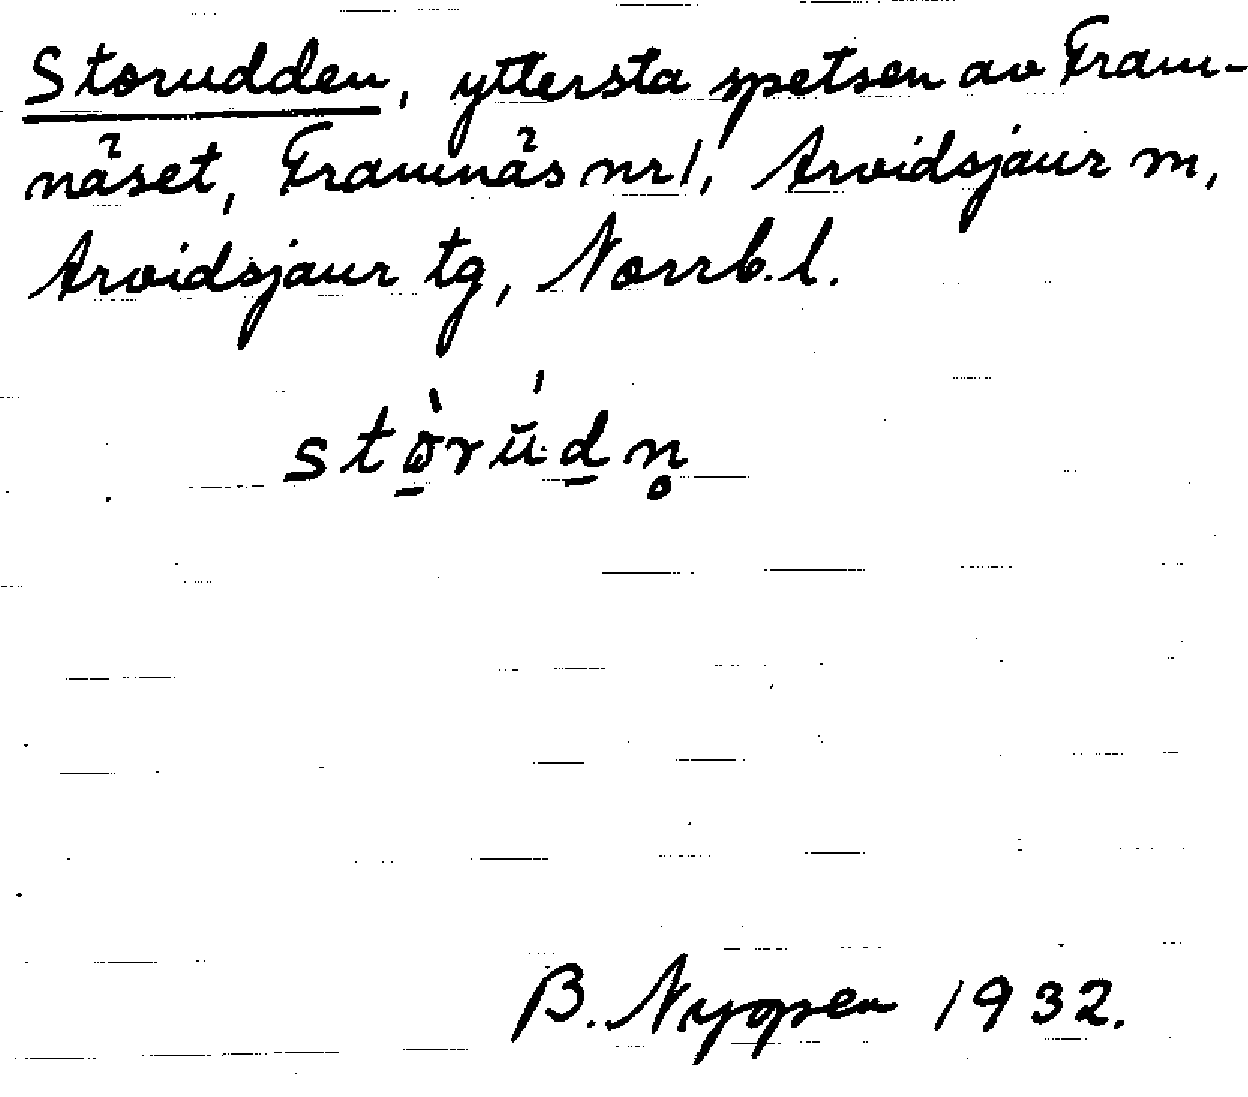 Storudden, yttersta spetsen av Fram-
näset, Framnäs nr 1, Arvidsjaur m,
Arvidsjaur tg, Norrb. l.
stò̱rŭ́ḏn̥